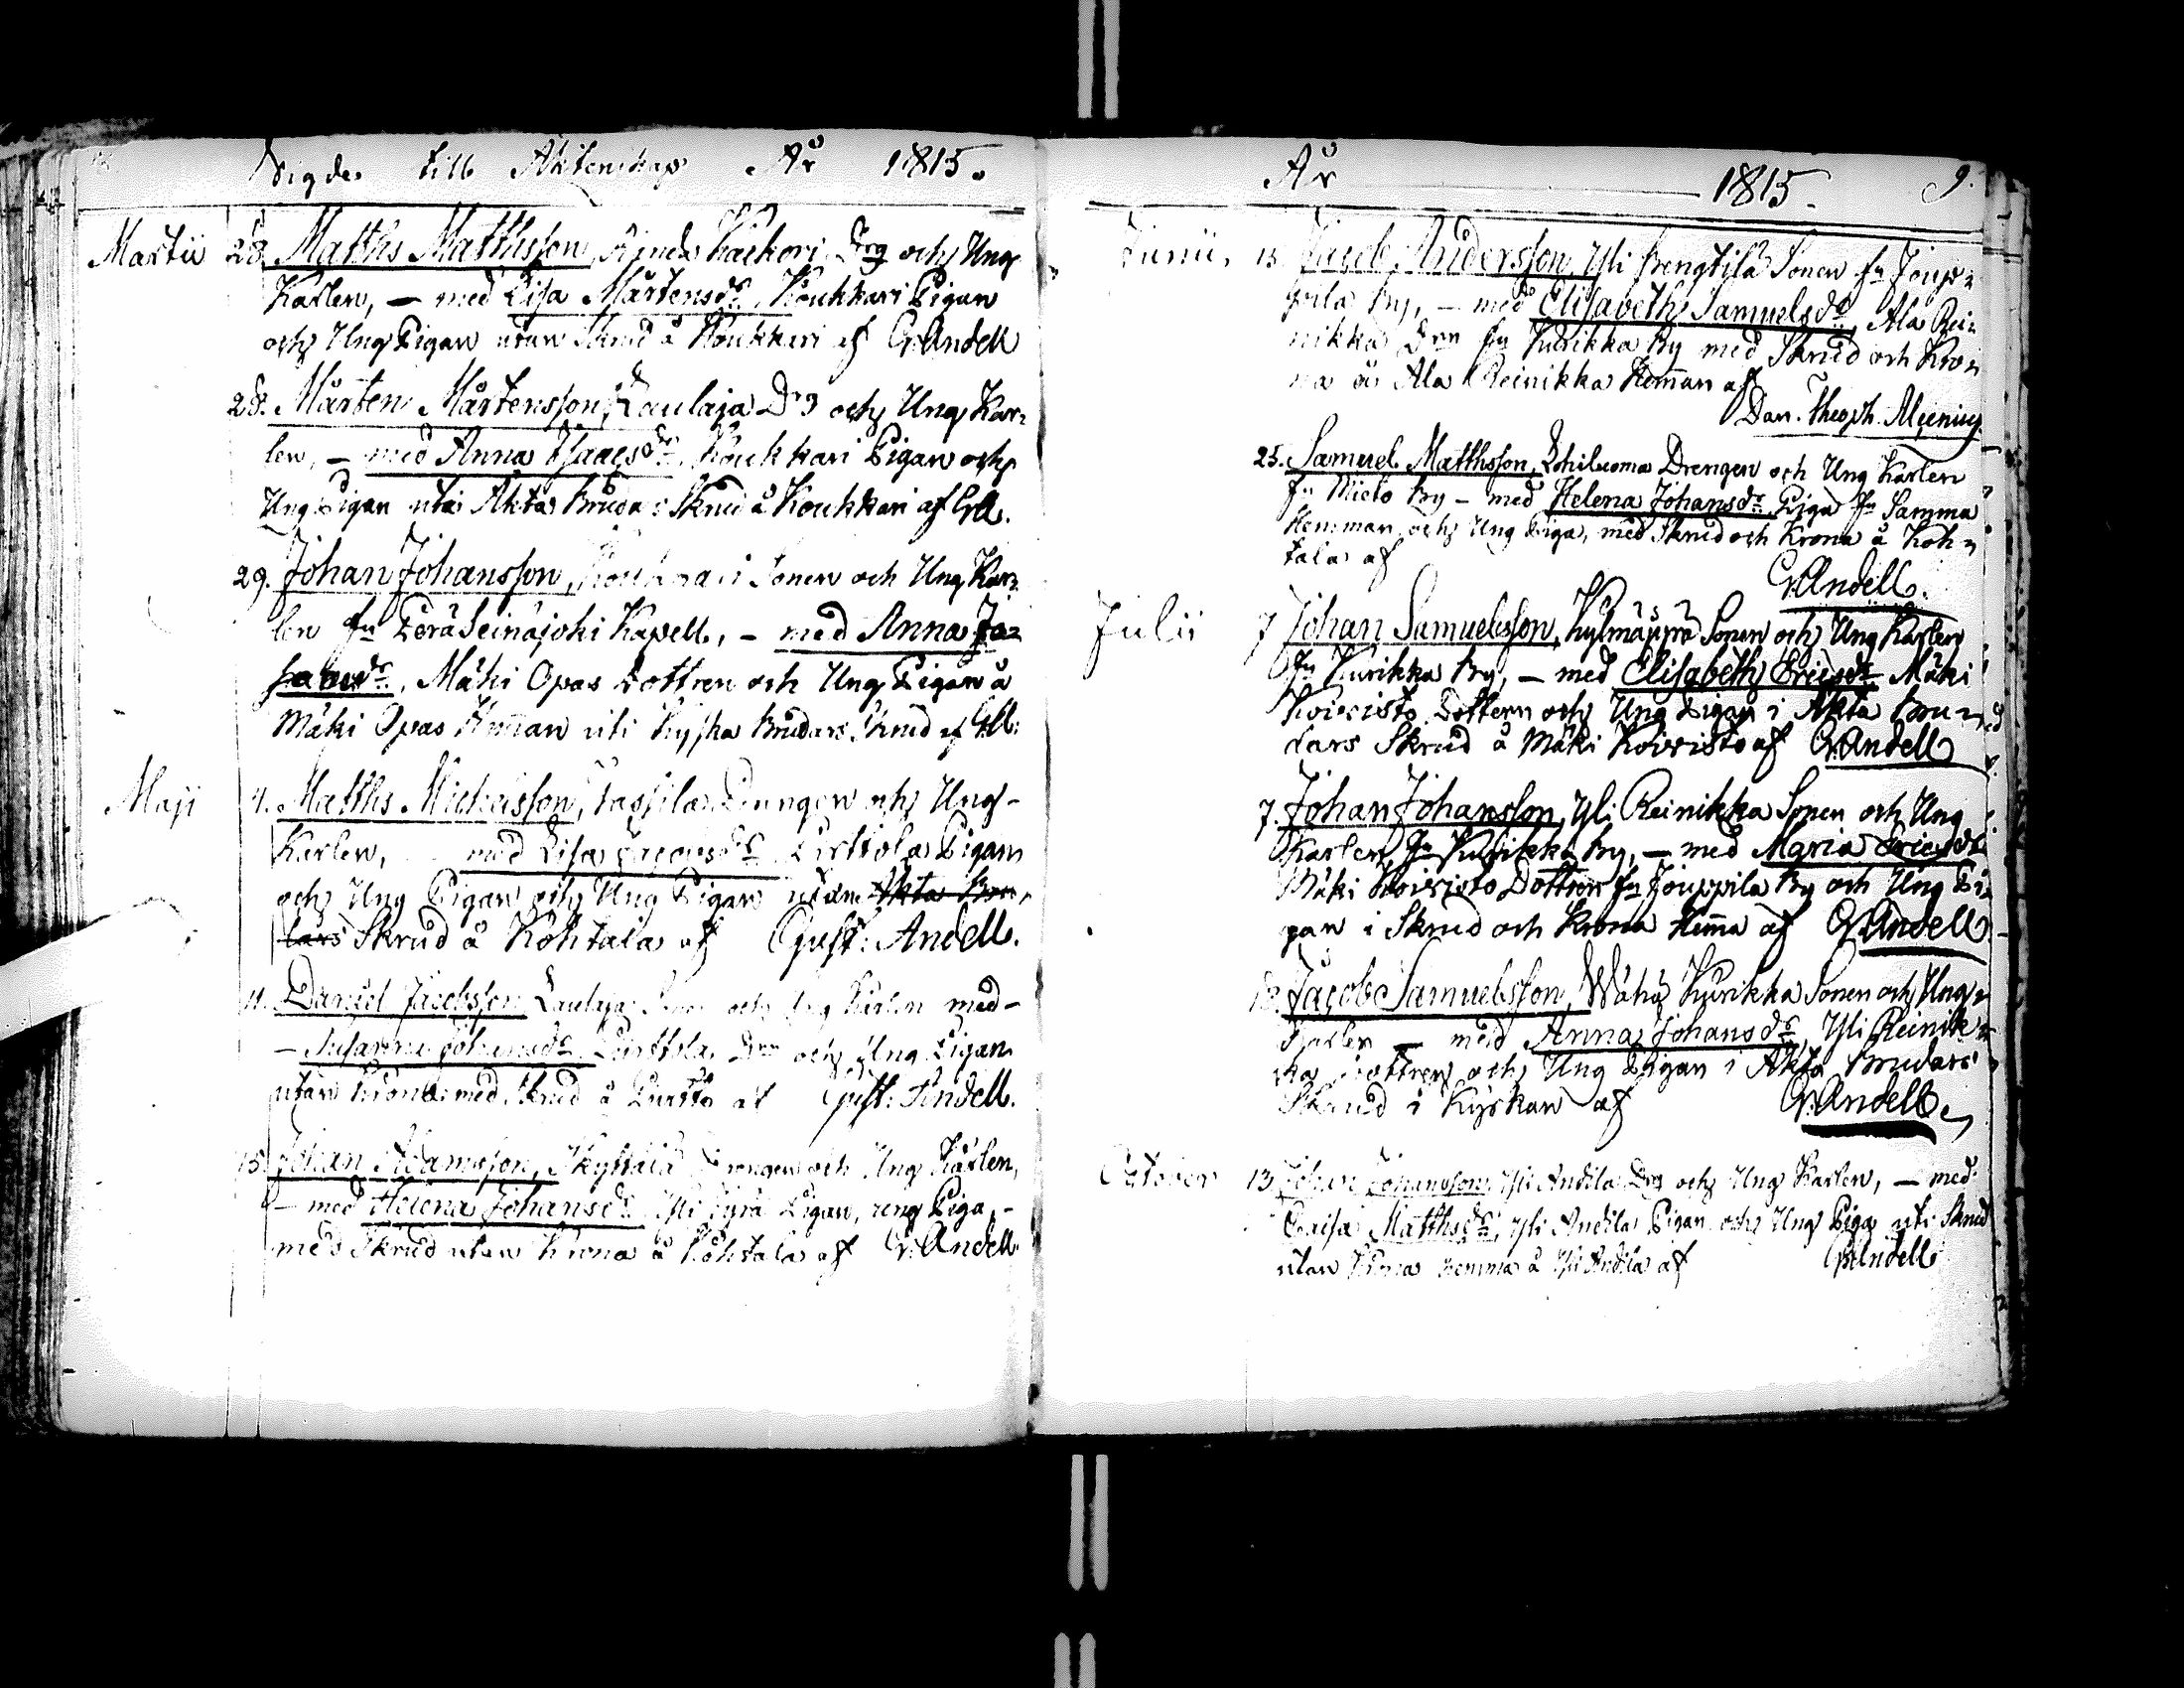 Vigde till Äktenskap År 1815.
Martii 28. Matths Matthsson, Rinda Drg och Ung
Karlen, – med Lisa Mårtensdr Koukkari Pigan
och Ung Pigan utan Skrud å Koukkari af G. Andell
28. Mårten Mårtensson, Laulaja Drg och Ung Kar=
len, – med Anna Isaacsdr Koukkari Pigan och
Ung Pigan uti Äkta Bruda: Skrud å Koukkari af GAll.
29. Johan Johansson, Sonen och Ung Kar=
len fn PeräSeinäjoki Kapell., – med Anna Jo=
hansdr, Mäki Opas Dottren och Ung Pigan å
Mäki Opas Hem̄an uti Kyska Brudars Skrud af GAll:
Maji 11. Matths Michelsson, Tassila Drengen och Ung-
Karlen, med Lisa Pigan
och Ung Pigan och Ung Pigan utan Äkta Bru=
dars Skrud å Kohtala af Gust: Andell.
11. Daniel Jacobsson Laulaja Sonen och Ung Karlen med –
– Susanna Johansdr Dn och Ung Pigan
utan Krona med Skrud å af Gust: Andell.
15. Johan Adamsson, Skyttälä Drengen och Ung Karlen,
– med Helena Johansdr Yli Pigan, ung Piga, –
med Skrud utan Krona å Kohtala af G. Andell
År 1815. 9.
Junii, 15. Jacob Andersson Yli Brengtilä Sonen fn Joup=
pila By, – med Elisabeth Samuelsdr, Ala Rei=
nikka Drn fn Kurikka By med Skrud och Kro=
na å Ala Reinikka Hem̄an af
Dan. Theoph. Alcenius
25. Samuel Matthsson, Lohiluoma Drengen och Ung Karlen
fn Mieto By – med Helena Johansdr Piga fn Samma
Hemman och Ung Piga, med Skrud och Krona å Koh=
tala af G. Andell.
Julii 7 Johan Samuelsson, Kylmäpyrä Sonen och Ung Karlen
fn Kurikka By, – med Elisabeth Ericsdr Mäki
Koivisto Dottern och Ung Pigan i Äkta Bru=
dars Skrud å Mäki Koivisto af G. Andell
7. Johan Johansson, Yli Reinikka Sonen och Ung
Karlen, fn Kurikka By, – med Maria Ericsdr
Mäki Koivisto Dottren fn Jouppila By och Ung Pi=
gan i Skrud och Krona Hem̄a af G. Andell
Jacob Samuelsson, Wähä Kurikka Sonen och Ung=
Karlen – med Anna Johansdr, Yli Reinik=
ka Dottren och Ung Pigan i Äkta Brudars
Skrud i Kyrkan af G. Andell.
October 13 Johan Johansson, Yli Andila Drg och Ung Karlen, – med
Caisa Matthsdr, Yli Andila Pigan och Ung Piga uti Skrud
utan Krona hemma å Yli Andila af G. Andell